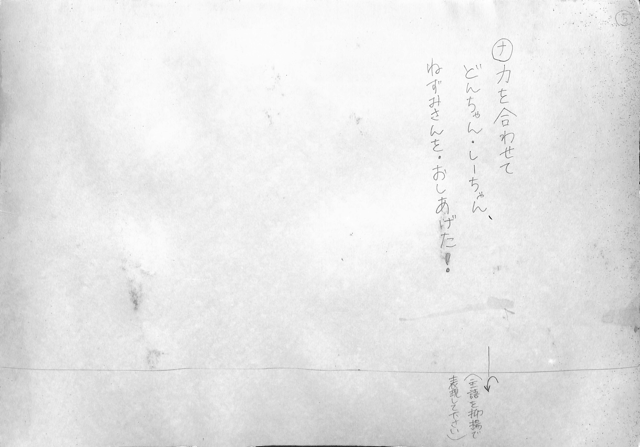 ⑤
ナ 力を合わせて
どんちゃん・しーちゃん、
ねずみさんを・おしあげた!
(主語を抑揚で
表現して下さい)